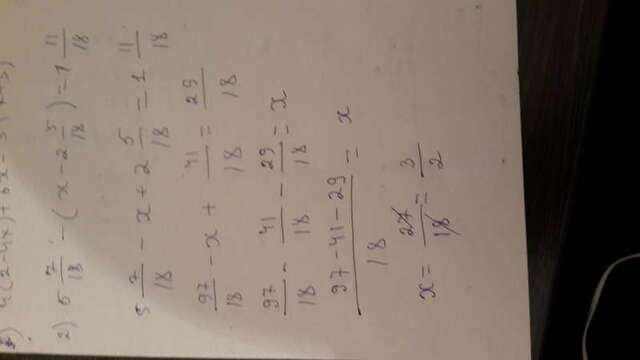 4(2-4x)+6x-
2) 5 7/18 - (x - 2 5/18) = 1 11/18
5 7/18 - x + 2 5/18 = 1 11/18
97/18 - x + 41/18 = 29/18
97/18 - 41/18 - 29/18 = x
97-41-29/18 = x
x = 27/18 = 3/2